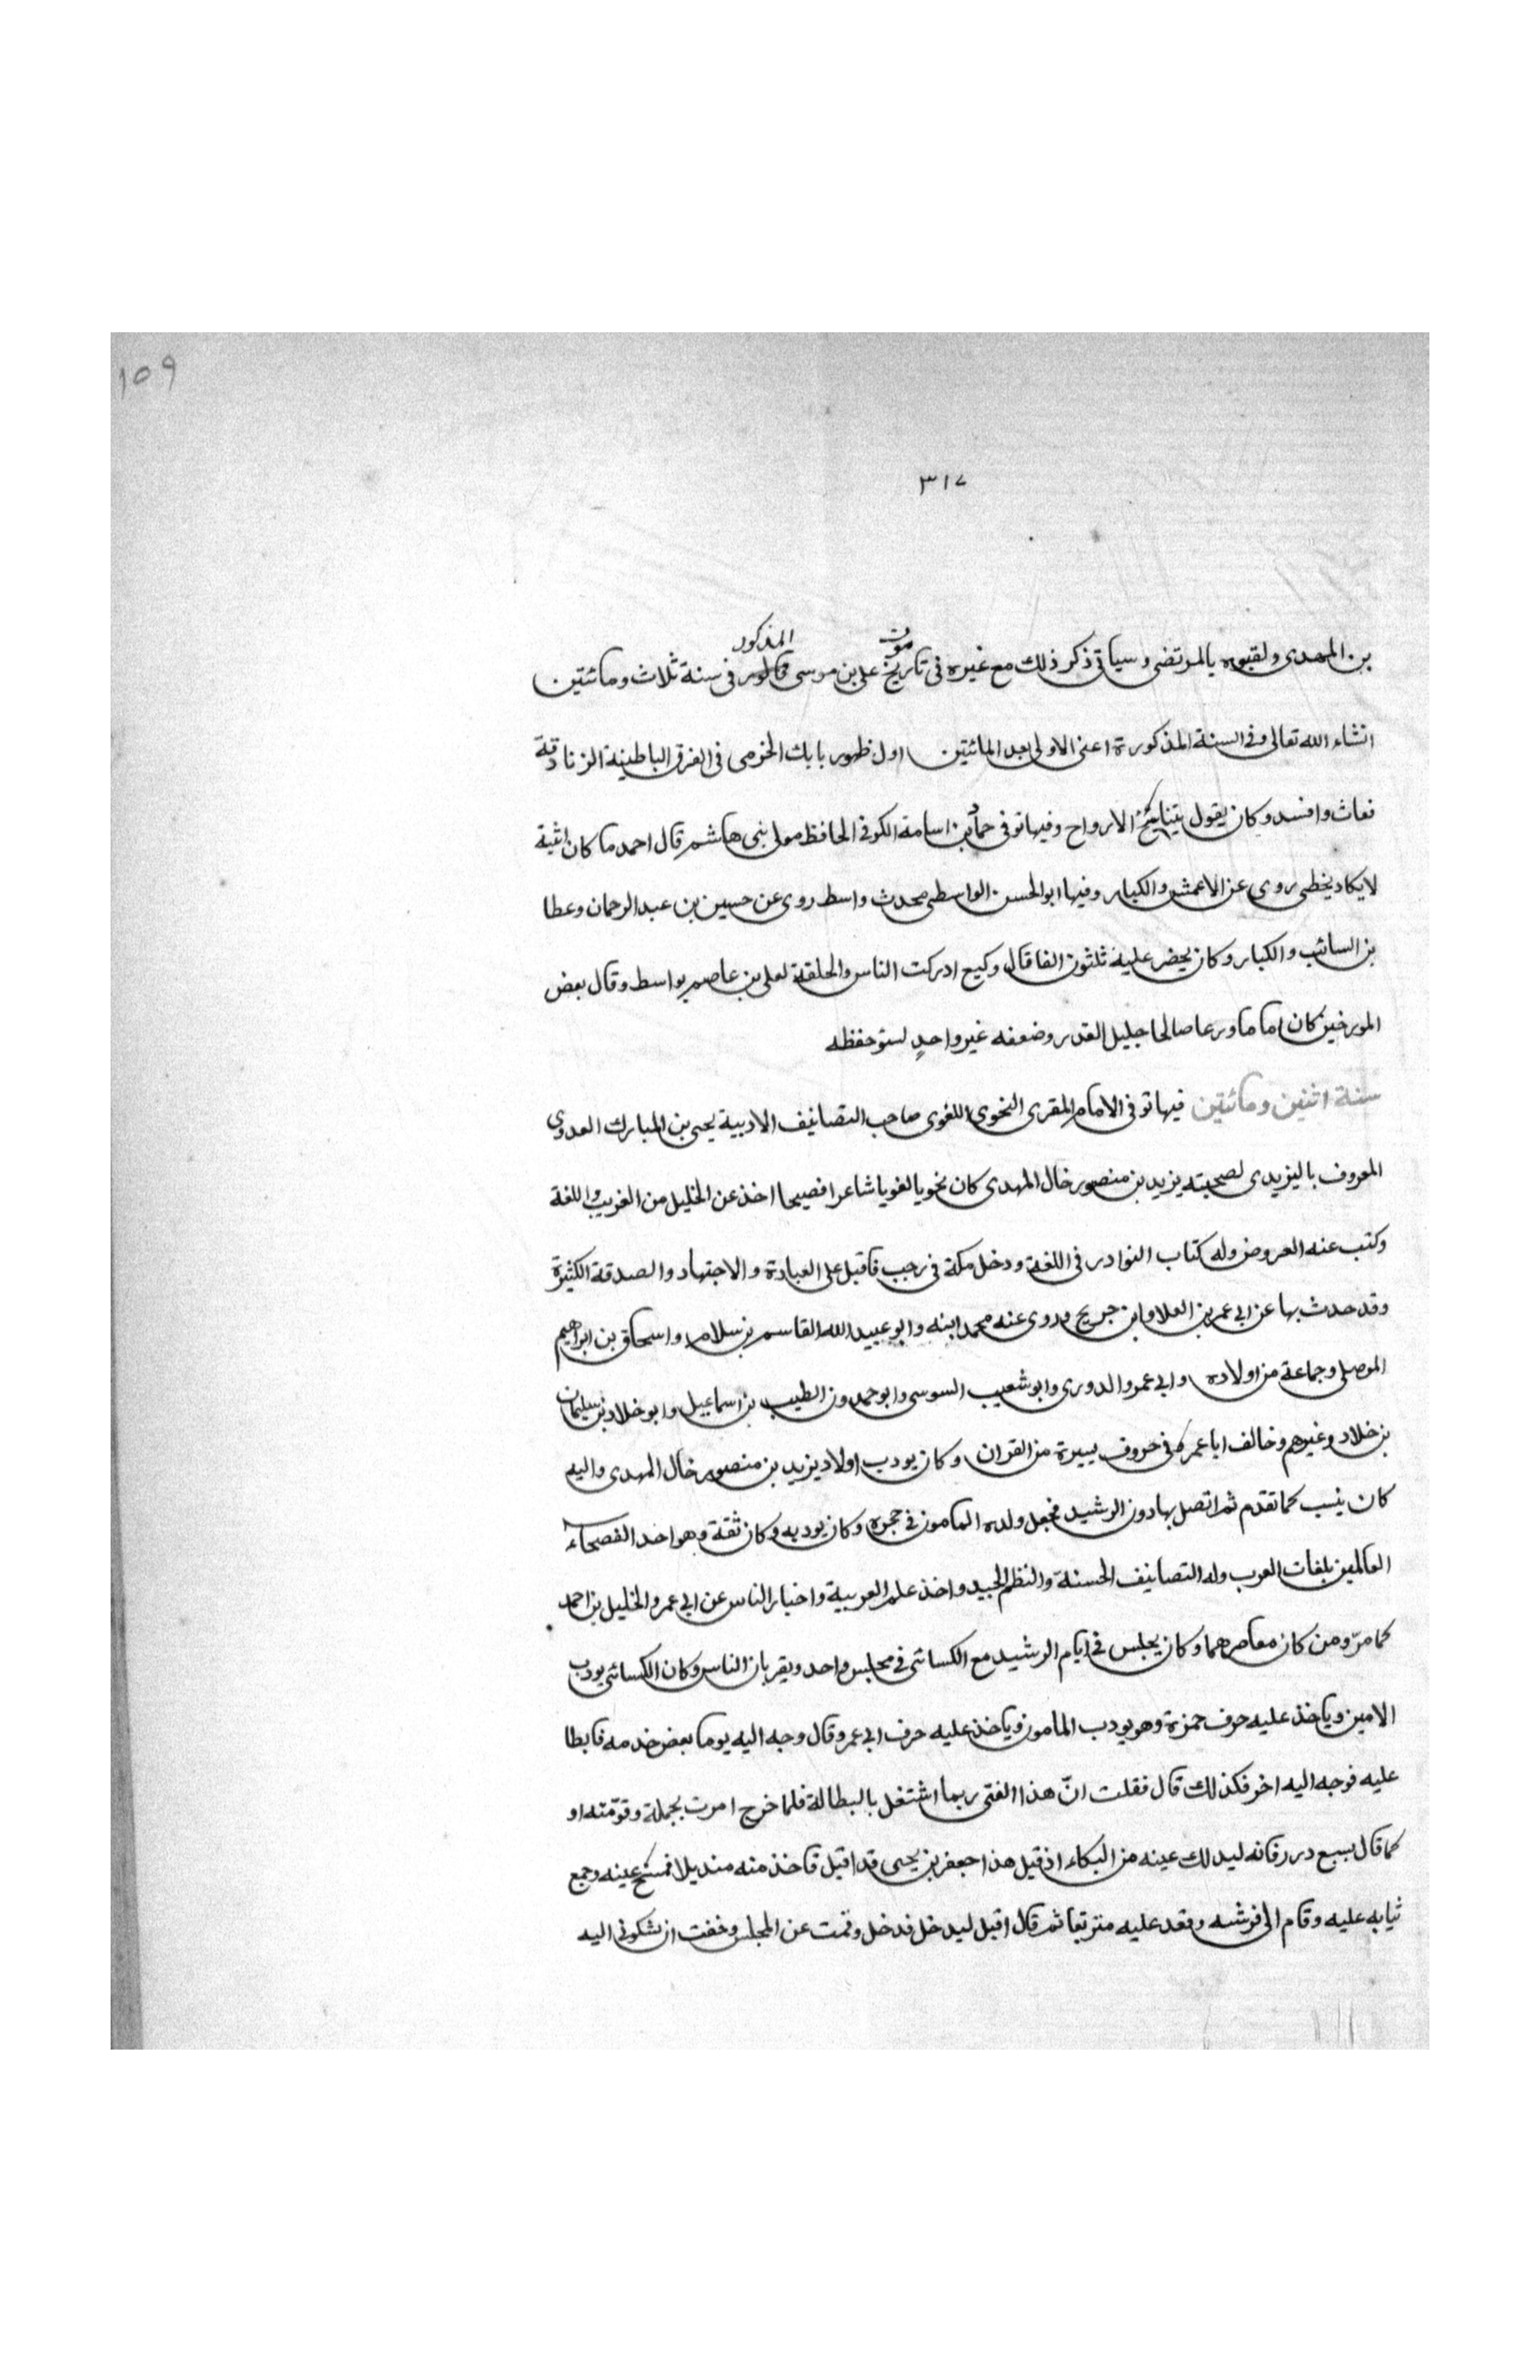 ١٥٩
٣١٧
بن المهدى ولقبوه بالمرتضى وسياتى ذكر ذلك مع غيره فى تاريخ موت على بن موسى المذكور فى سنة ثلاث ومائتين
انشاء الله تعالى وفى السنة المذكورة اعنى الاولى بعد المائتين اول ظهور بابك الخرمى فى الفرق الباطينة الزنادقة
فعاث وافسد وكان يقول بتناسخ الارواح وفيها توفى حماد بن اسامة الكوفى الحافظ مولى بنى هاشم قال احمد ما كان اثبته
لا يكاد يخطى روى عن الاعمش والكبار وفيها ابو الحسن الواسطى محدث واسط روى عن حسين بن عبد الرحمان وعطا
بن السائب والكبار وكان يحضر عليه ثلثون الفا قال وكيع ادركت الناس والحلقة لعلى بن عاصم بواسط وقال بعض
المورخين كان اماما ورعا صالحا جليل القدر وضعفه غير واحدٍ لسو حفظه
سنة اثنين ومائتين فيها توفى الامام المقرى النحوى اللغوى صاحب التصانيف الادبية يحيى بن المبارك العدوى
المعروف باليزيدى لصحبته يزيد بن منصور خال المهدى كان نحويا لغويا شاعرا فصيحا اخذ عن الخليل من الغريب واللغة
وكتب عنه العروض وله كتاب النوادر فى اللغة ودخل مكة فى رجب فاقبل على العبادة والاجتهاد والصدقة الكثيرة
وقد حدث بها عن ابى عمر بن العلا وابن جريح وروى عنه محمد ابنه وابو عبيد الله القاسم بن سلام واسحاق بن ابراهيم
الموصلى وجماعة من اولاده وابى عمرو الدورى وابو شعيب السوسى وابو حمدون الطيب بن اسماعيل وابو خلاد بن سليمان
بن خلاد وغيرهم وخالف ابا عمر فى حروف يسيرة من القران وكان يودب اولاد يزيد بن منصور خال المهدى واليه
كان ينسب كما تقدم ثم اتصل بهارون الرشيد فجعل ولده المامون فى حجره وكان يودبه وكان ثقة وهو احد الفصحاء
العالمين بلغات العرب وله التصانيف الحسنة والنظم الجيد واخذ علم العربية واخبار الناس عن ابى عمرو الخليل بن احمد
كما مرّ ومن كان معاصرهما وكان يجلس فى ايام الرشيد مع الكسائى فى مجلس واحد ويقريان الناس وكان الكسائى يودب
الامين وياخذ عليه حرف حمزة وهو يودب المامون وياخذ عليه حرف ابى عمر وقال وجه اليه يوما بعض خدمه فابطا
عليه فوجه اليه اخر فكذلك قال فقلت انّ هذا الفتى ربما اشتغل بالبطالة فلما خرج امرت بجملة وقوّمته او
كما قال بسبع درر فانه ليدلك عينه من البكاء اذ قيل هذا جعفر بن يحيى قد اقبل فاخذ منه منديلا فمسح عينه وجمع
ثيابه عليه وقام الى فرشه وقعد عليه متربعا ثم قال اقبل ليدخل فدخل وقمت عن المجلس وخفت ان نشكونى اليه